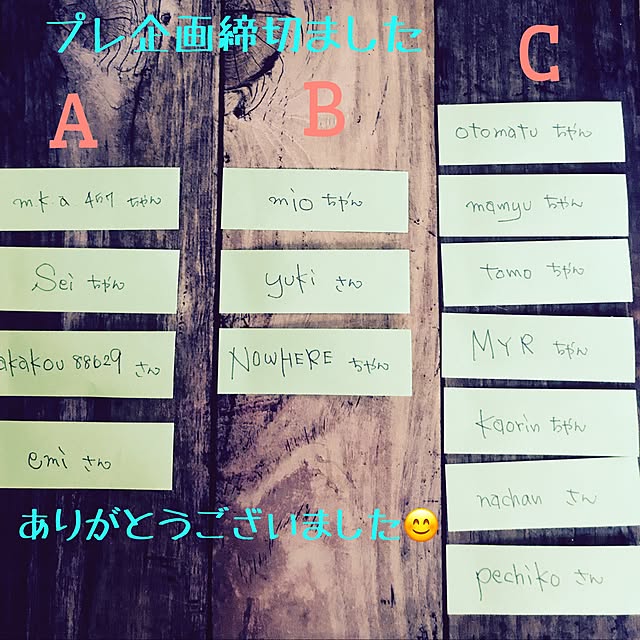 プレ企画締切ました
A
mk.a 467 ちゃん
Sei ちゃん
akakou 88629 さん
emi さん
B
mio ちゃん
yuki さん
NOWHERE ちゃん
C
otomatu ちゃん
mamyu ちゃん
tomo ちゃん
MYR ちゃん
kaorin ちゃん
nachan さん
pechiko さん
ありがとうございました😊